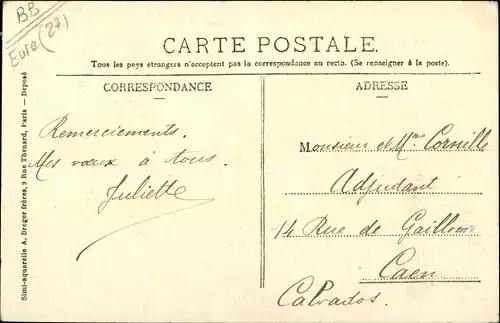 BB
Eure (27)
CARTE POSTALE.
Tous les pays étrangers n'acceptent pas la correspondance au recto. (Se renseigner à la poste).
CORRESPONDANCE
Remerciements.
Mes vœux à tous.
Juliette
ADRESSE
Monsieur et Mme Cornille
Adjudant
14 Rue de Gaillon
Caen
Calvados.
Simi-aquarelle A. Breger frères, 9 Rue Thénard, Paris — Deposé